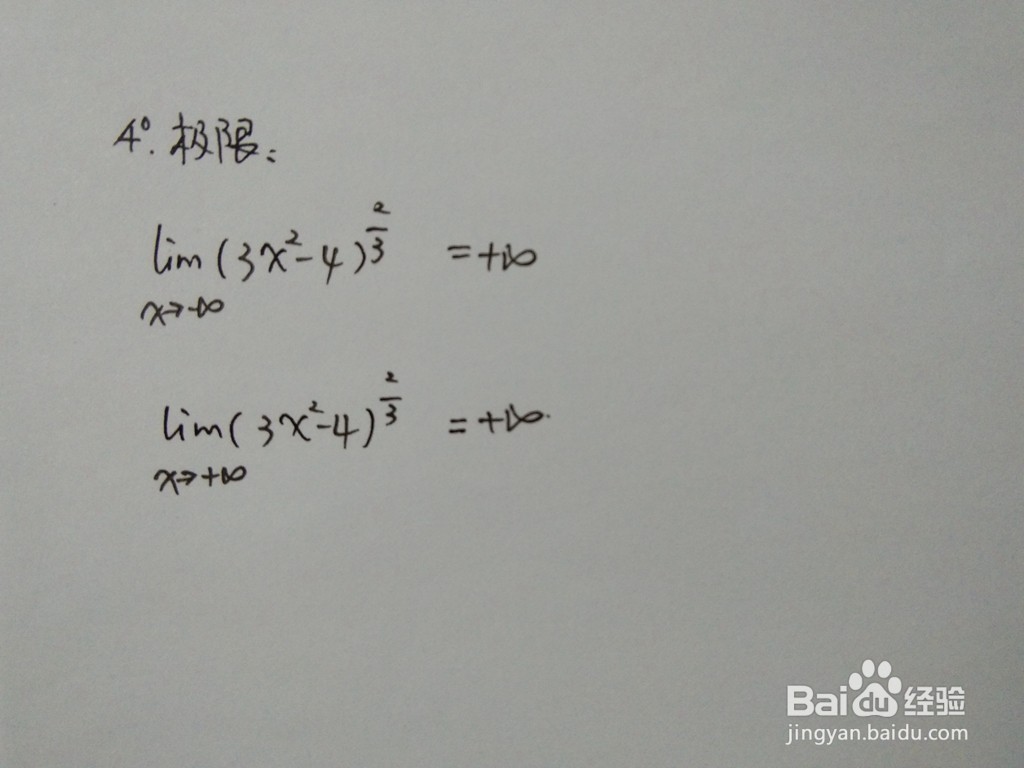 4°. 极限:
lim (3x²-4)^(2/3) = +∞
x→-∞
lim (3x²-4)^(2/3) = +∞.
x→+∞
Baidu 经验
jingyan.baidu.com